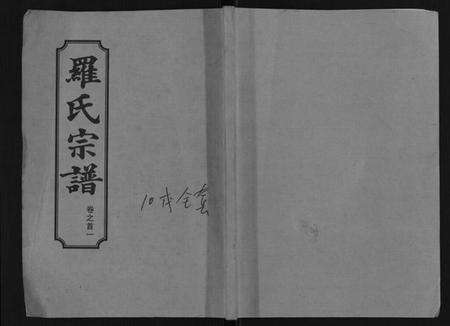 羅氏宗譜
卷之首一
10戎全套